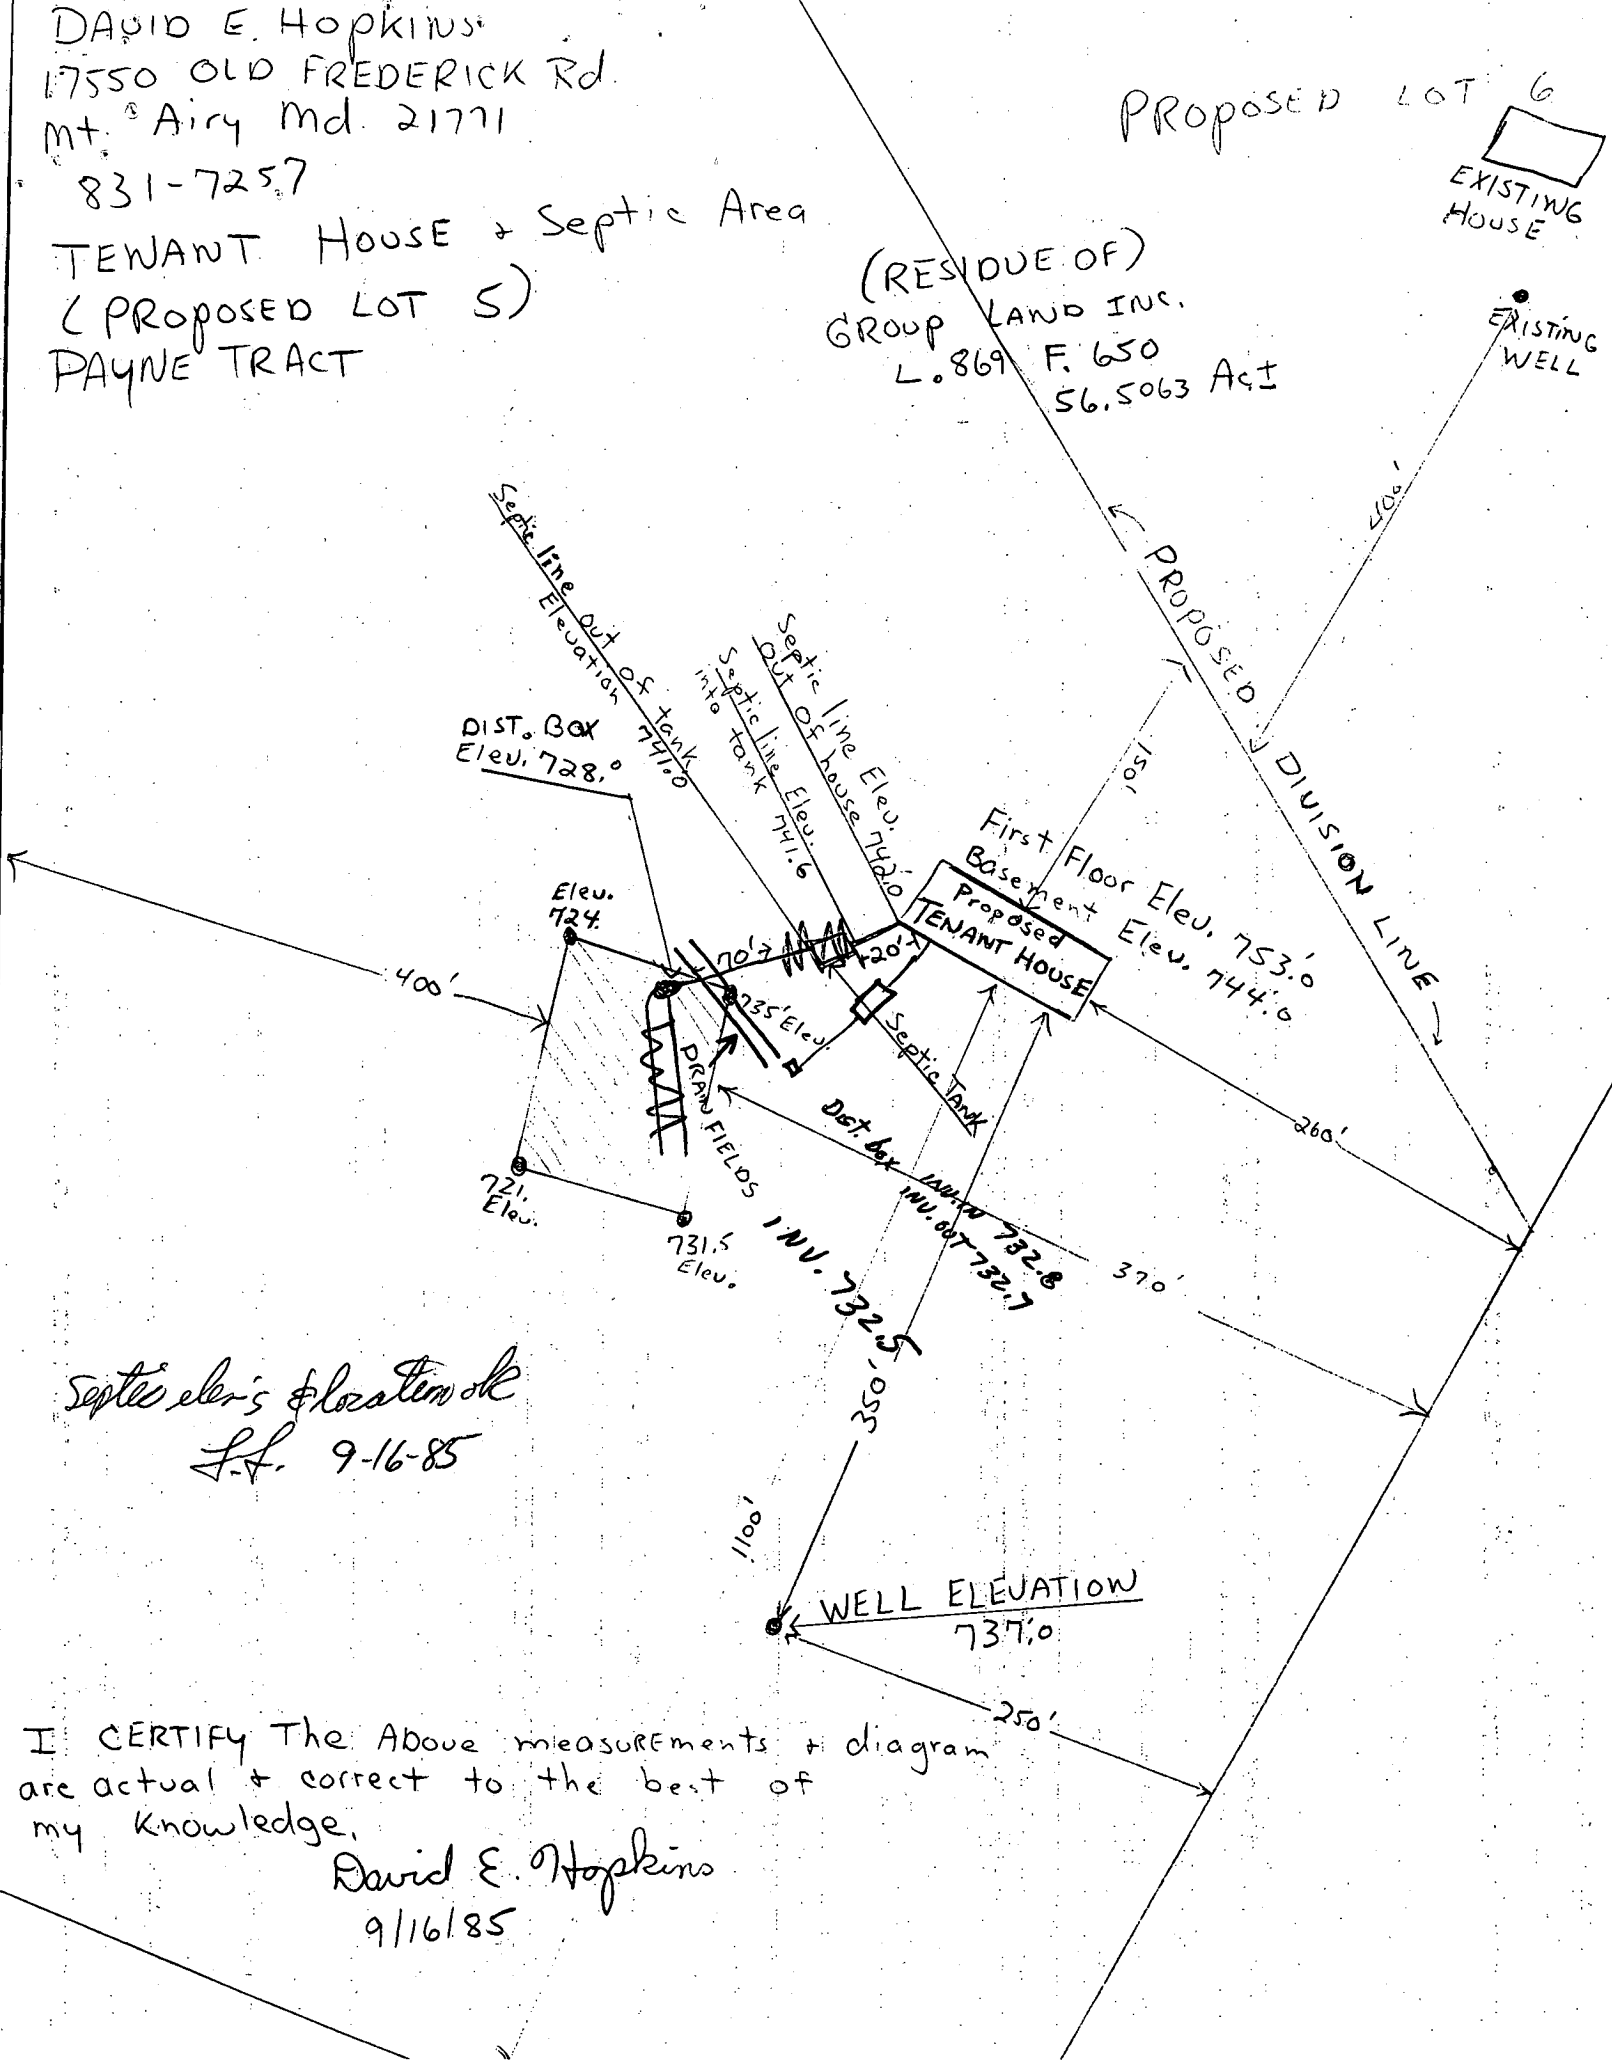 DAVID E. HOPKINS
17550 OLD FREDERICK Rd.
Mt. Airy Md. 21771
831-7257
TENANT HOUSE + Septic Area
(PROPOSED LOT 5)
PAYNE TRACT
PROPOSED LOT 6
EXISTING
HOUSE
EXISTING
WELL
(RESIDUE OF)
GROUP LAND INC.
L.869 F. 650
56.5063 Ac±
400'
PROPOSED DIVISION LINE
150'
Septic line out of tank
Elevation 741.0
Septic line Elev.
into tank 741.6
Septic line Elev.
out of house 742.0
DIST. BOX
Elev. 728.0
First Floor Elev. 753.0
Basement Elev. 744.0
Proposed
TENANT HOUSE
Elev.
724.
70'±
20'±
735' Elev.
400'
DRAIN FIELDS INV. 732.5
Septic Tank
Dist. box INV. IN 732.8
INV. OUT 732.7
260'
721.
Elev.
731.5
Elev.
370'
350'
1100'
Septic elev's & location ok
9-16-85
WELL ELEVATION
737.0
250'
I CERTIFY The Above measurements + diagram
are actual + correct to the best of
my Knowledge.
David E. Hopkins
9/16/85